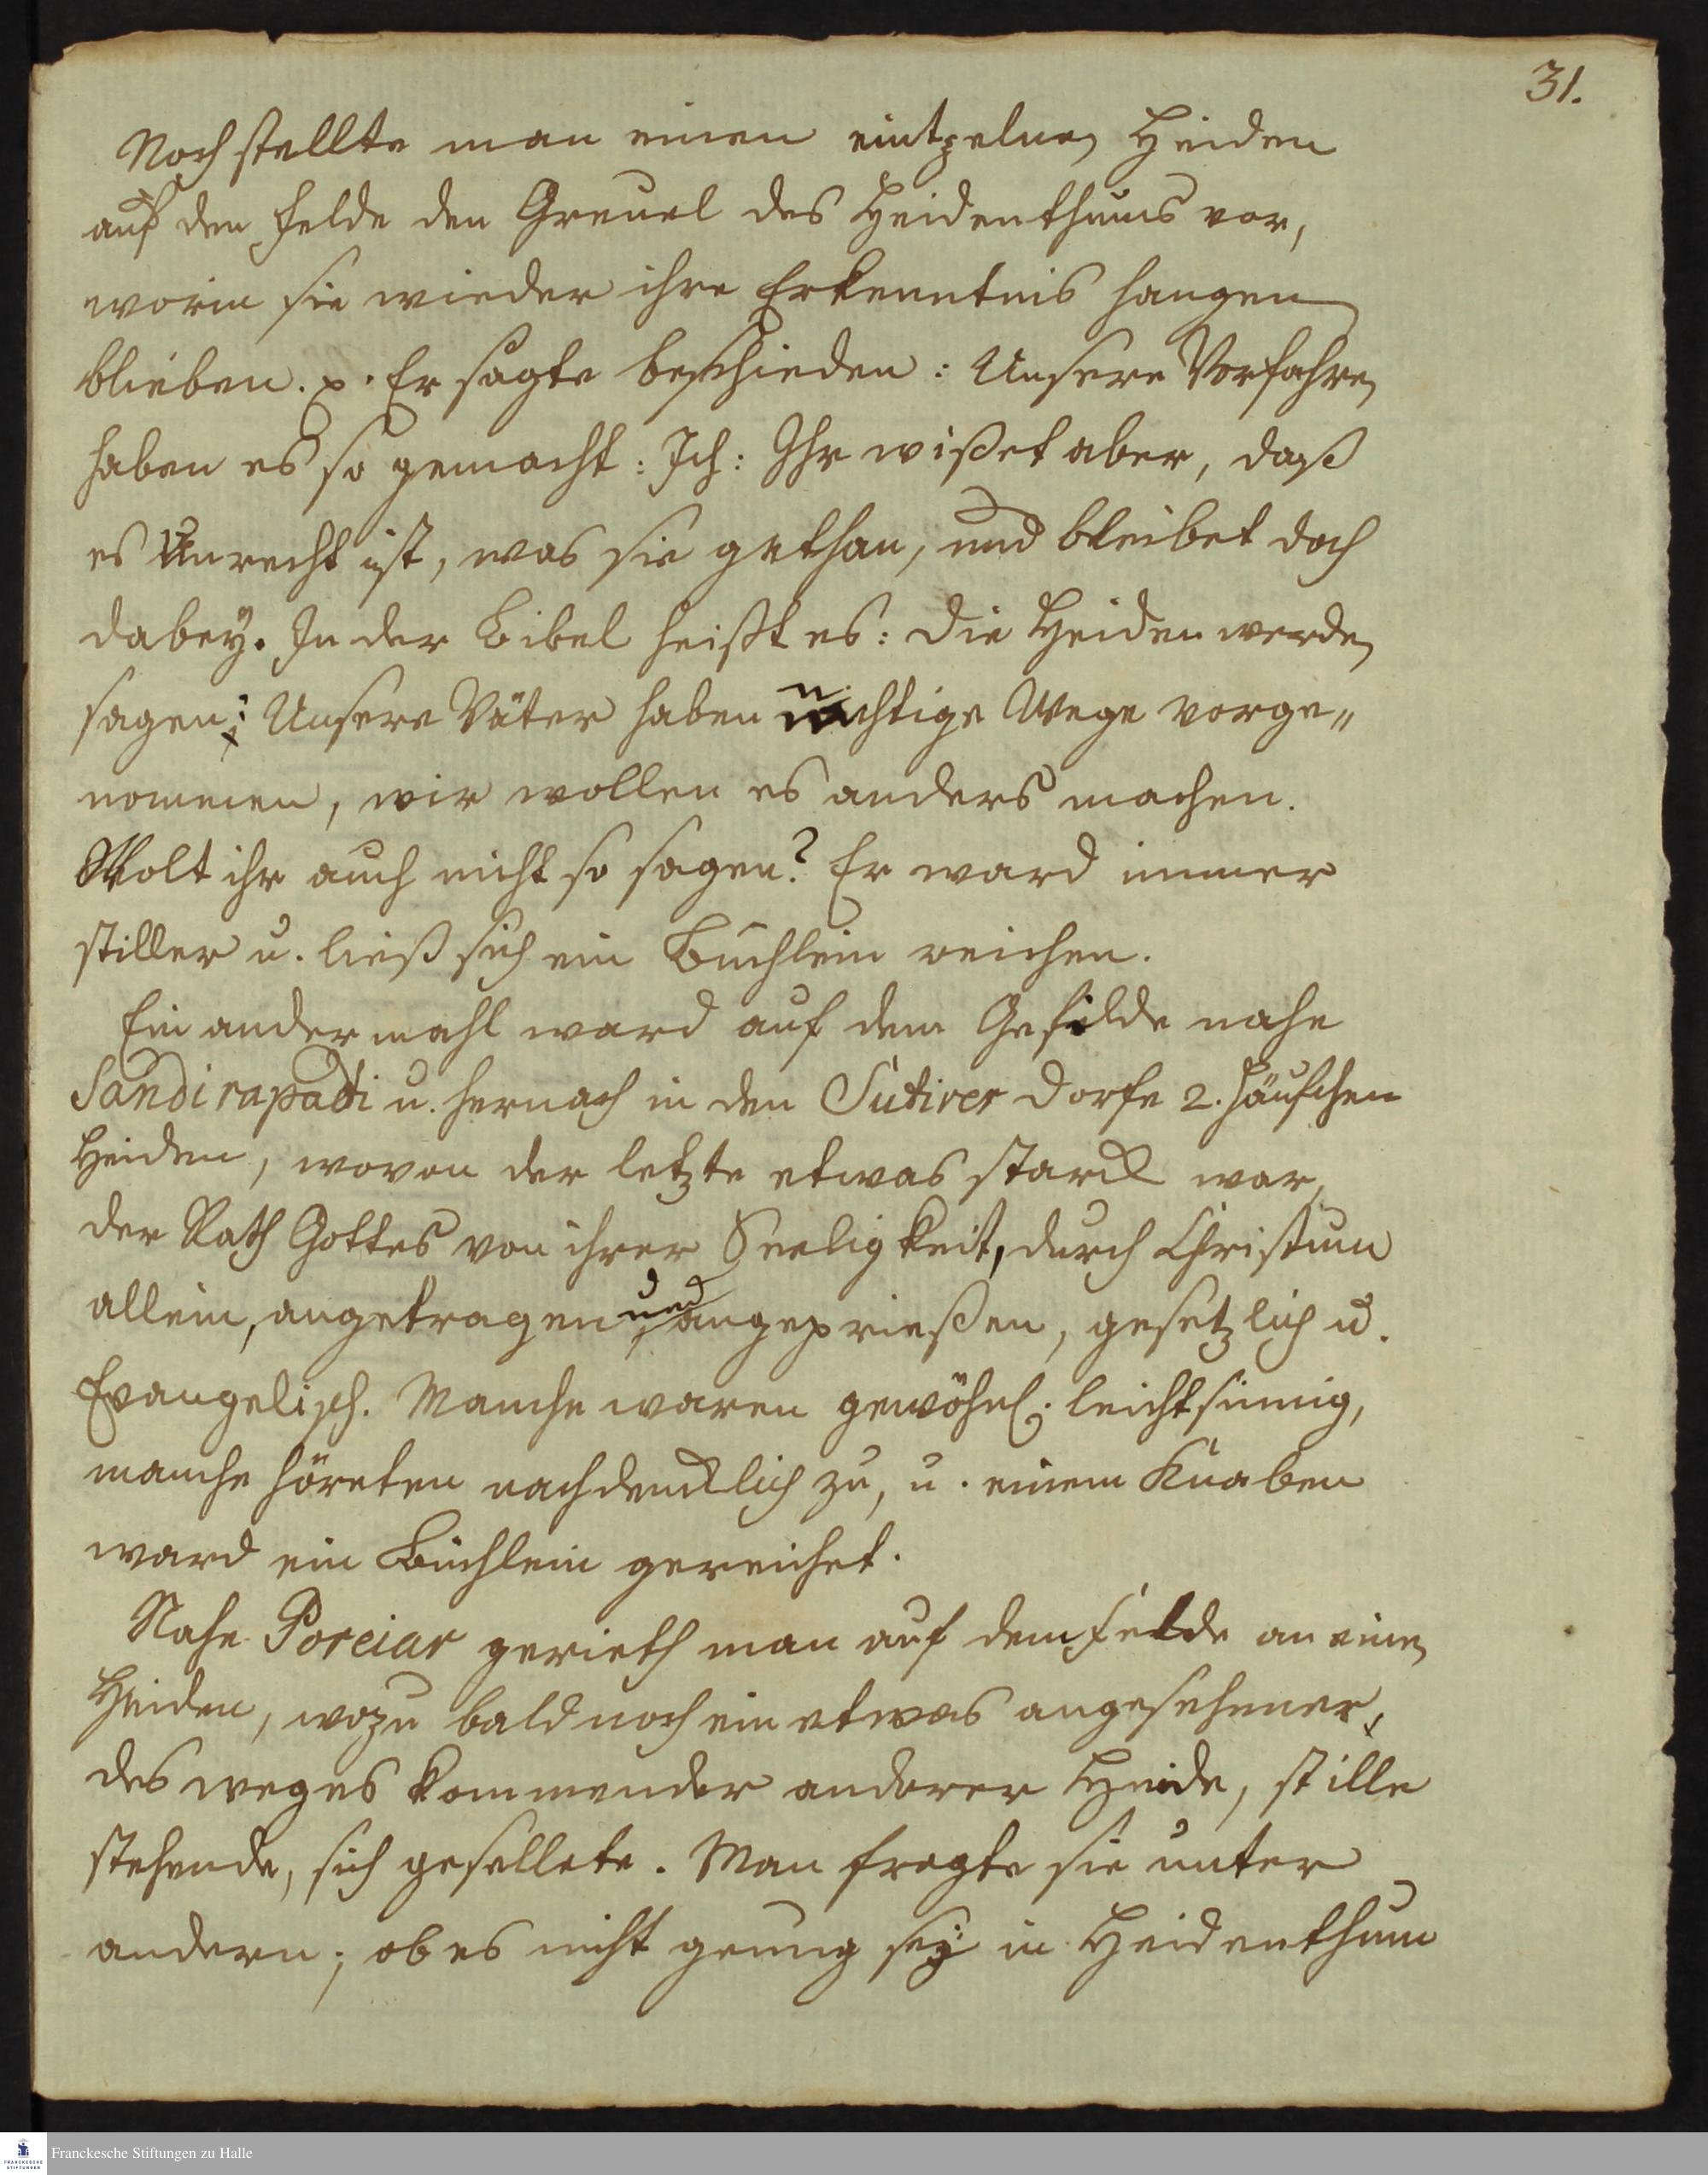 31.
Noch stellte man einen eintzelnen Heiden
auf dem Felde den Greuel des Heidenthums vor,
worin sie wieder ihre Erkenntnis hangen
blieben. p. Er sagte beschieden: Unsere Vorfahren
haben es so gemacht: Ich: Ihr wißet aber, daß
es Unrecht ist, was sie gethan, und bleibet doch
dabey. In der Bibel heißt es: die Heiden werden
sagen: Unsere Väter haben nichtige Wege vorge„
nommen, wir wollen es anders machen.
Wolt ihr auch nicht so sagen? Er ward immer
stiller u. ließ sich ein Büchlein reichen.
Ein andermahl ward auf dem Gefilde nahe
Sandirapadi u. hernach in den Sutirer Dorfe 2. Häufchen
Heiden, wovon der letzte etwas starck war,
der Rath Gottes von ihrer Seeligkeit, durch Christum
allein, angetragen und angeprießen, gesetzlich u.
Evangelisch. Manche waren gewöhnl. leichtsinnig,
manche höreten nachdencklich zu, u. einem Knaben
ward ein Büchlein gereichet.
Nahe Poreiar gerieth man auf dem Felde an einen
Heiden, wozu bald noch ein etwas angesehener,
des weges kommender anderer Heide, stille
stehende, sich gesellete. Man fragte sie unter
andern; ob es nicht genug sey in Heidenthum
FRANCKESCHE STIFTUNGEN
Franckesche Stiftungen zu Halle